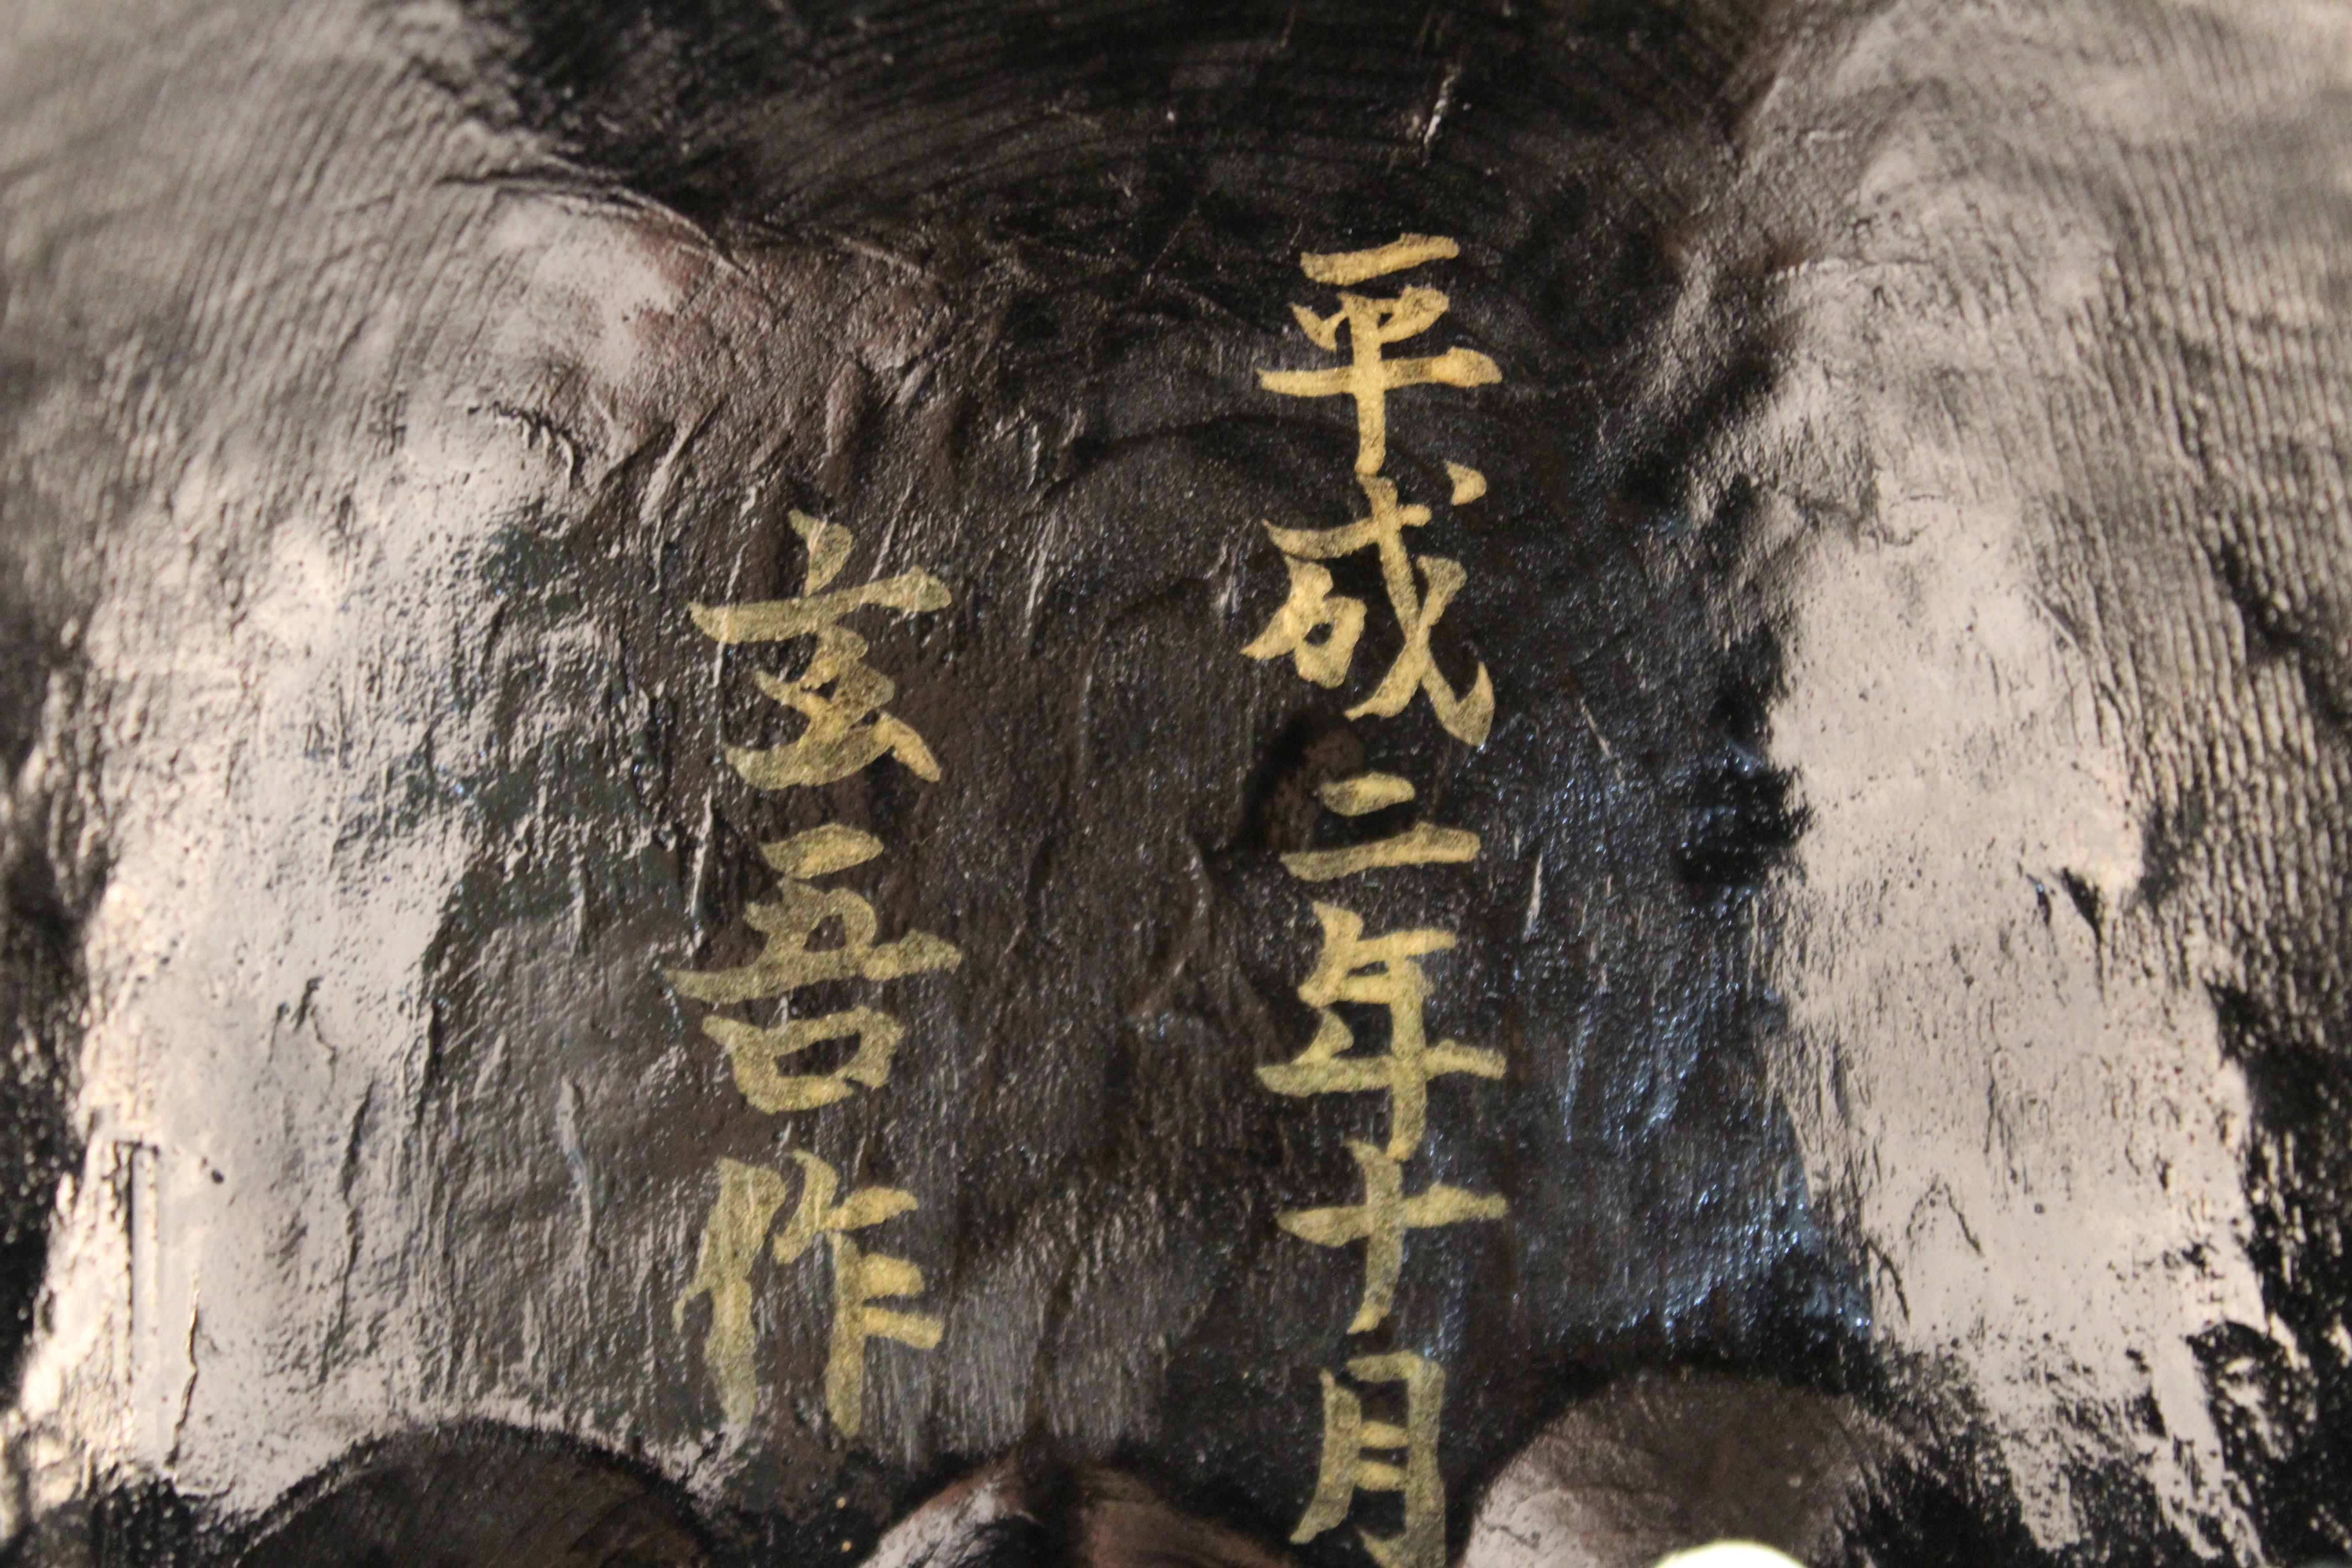 平成二年十月
玄吾作